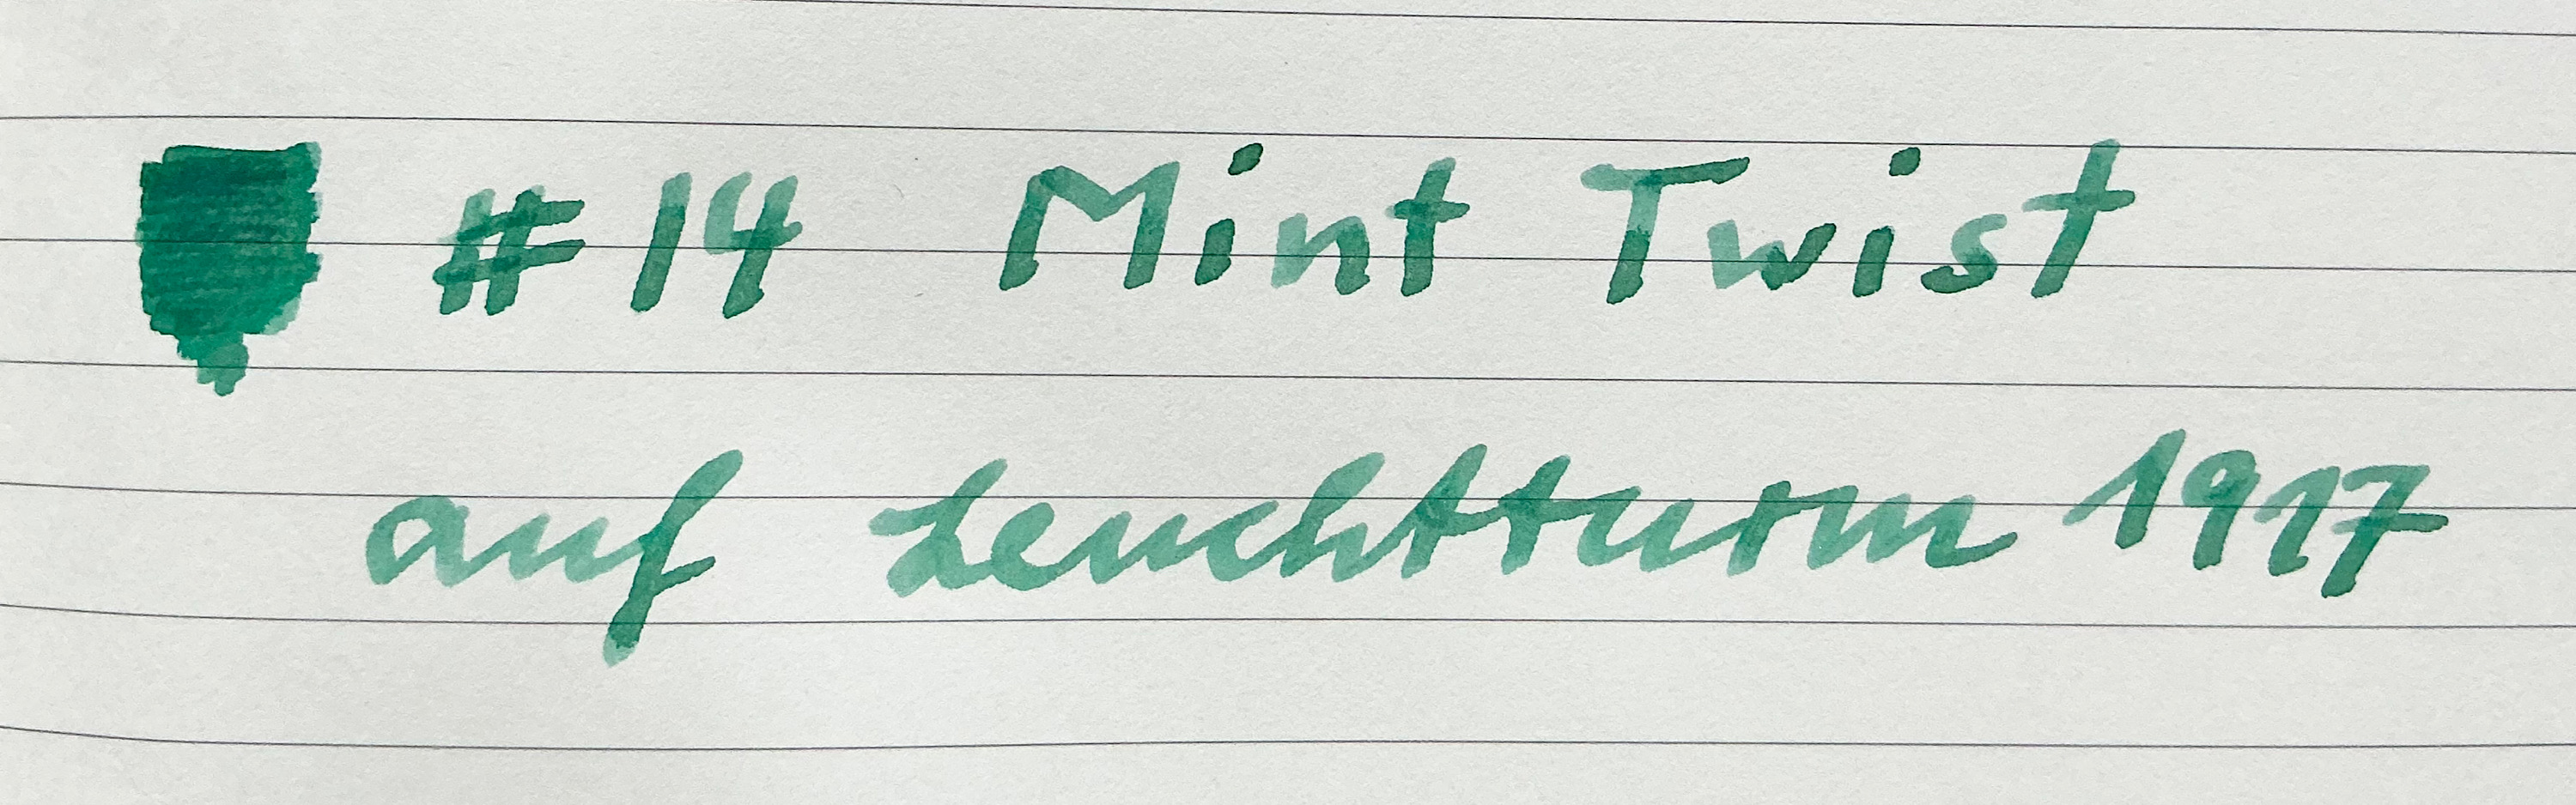 #14 Mint Twist
auf Leuchtturm 1917